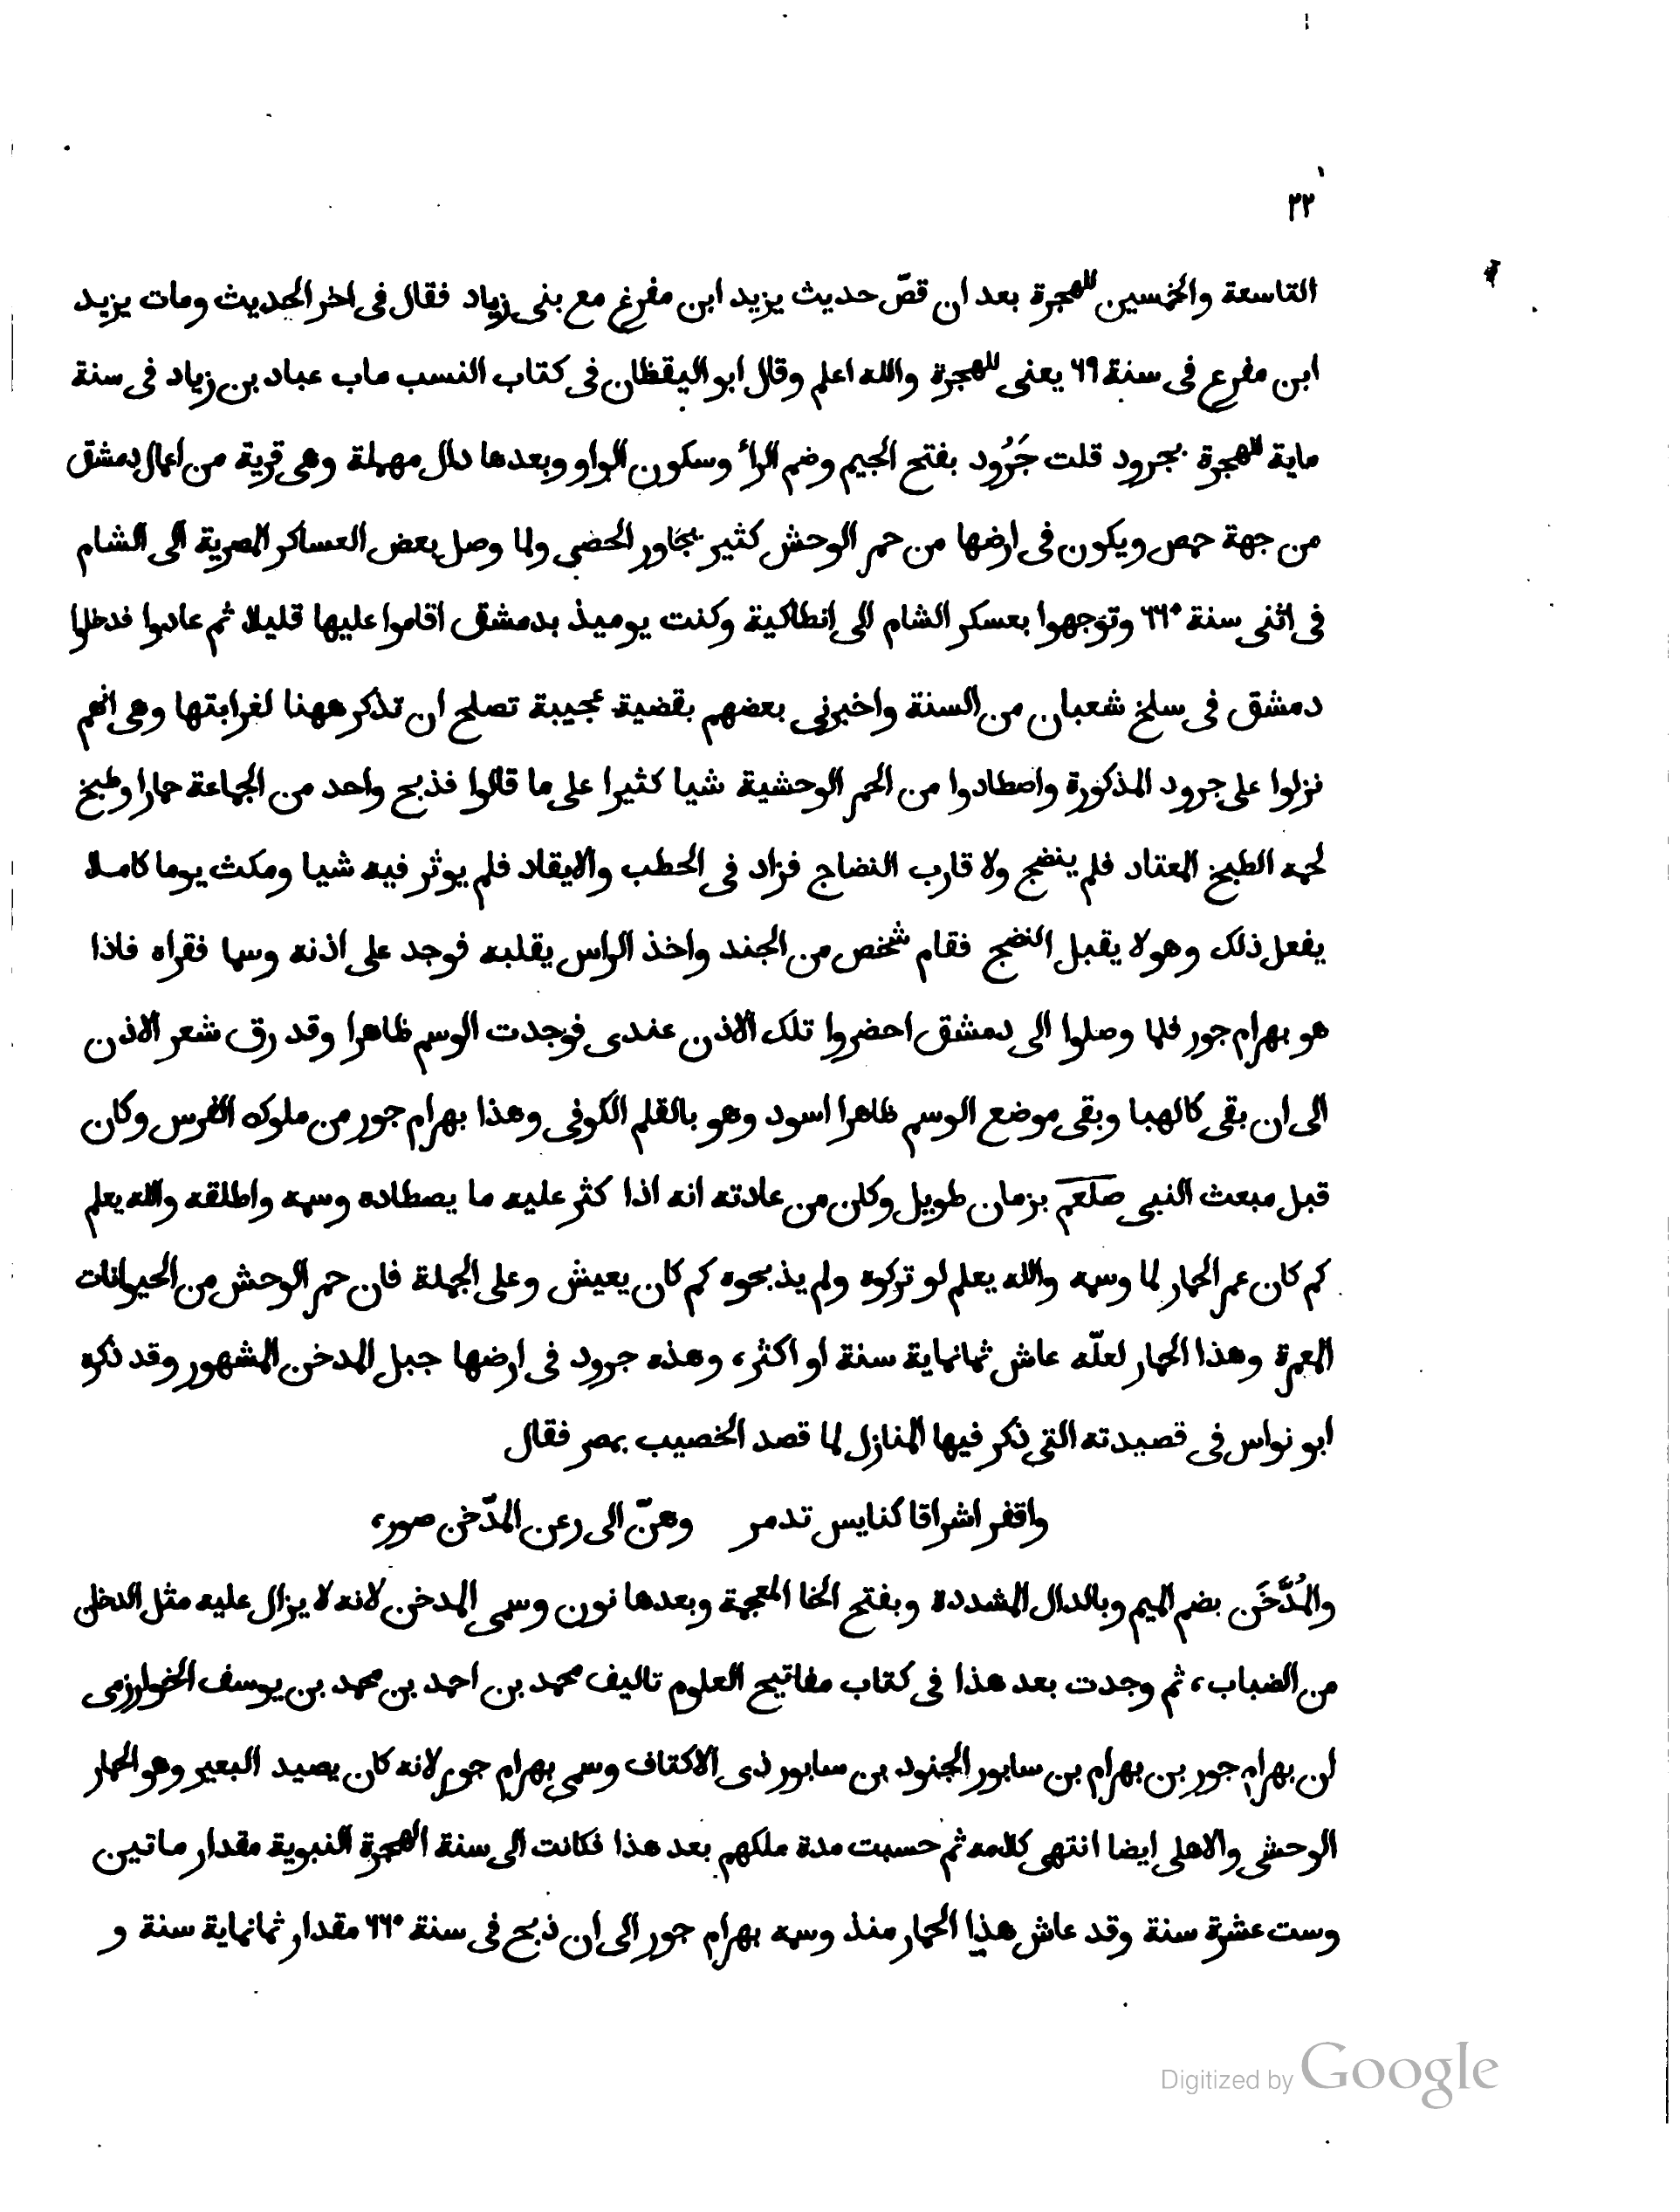 ٢٢
التاسعة والخمسين للهجرة بعد ان قصّ حديث يزيد ابن مفرغ مع بنى زياد فقال فى اخر الحديث ومات يزيد
ابن مفرع فى سنة ٦٩ يعنى للهجرة والله اعلم وقال ابو اليقظان فى كتاب النسب ماب عباد بن زياد فى سنة
ماية للهجرة بجرود قلت جَرُود بفتح الجيم وضم الرأ وسكون الواو وبعدها دال مهملة وهى قرية من اعمال دمشق
من جهة حمص ويكون فى ارضها من حمر الوحش كثير يجاور الحضى ولما وصل بعض العساكر المصرية الى الشام
فى اثنى سنة ٦٦٠ وتوجهوا بعسكر الشام الى انطاكية وكنت يوميذ بدمشق اقاموا عليها قليلا ثم عادوا فدخلوا
دمشق فى سلخ شعبان من السنة واخبرنى بعضهم بقضية عجيبة تصلح ان تذكر ههنا لغرابتها وهى انهم
نزلوا على جرود المذكورة واصطادوا من الحمر الوحشية شيا كثيرا على ما قالوا فذبح واحد من الجماعة حمارا وطبخ
لحمه الطبخ المعتاد فلم ينضج ولا قارب النضاج فزاد فى الحطب والايقاد فلم يوثر فيه شيا ومكث يوما كاملا
يفعل ذلك وهو لا يقبل النضج فقام شخص من الجند واخذ الراس يقلبه فوجد على اذنه وسما فقراه فاذا
هو بهرام جور فلما وصلوا الى دمشق احضروا تلك الاذن عندى فوجدت الوسم ظاهرا وقد رق شعر الاذن
الى ان بقى كالهبا وبقى موضع الوسم ظاهرا اسود وهو بالقلم الكوفى وهذا بهرام جور من ملوك الفرس وكان
قبل مبعث النبى صلعم بزمان طويل وكان من عادته انه اذا كثر عليه ما يصطاده وسمه واطلقه والله يعلم
كم كان عمر الحمار لما وسمه والله يعلم لو تركوه ولم يذبحوه كم كان يعيش وعلى الجملة فان حمر الوحش من الحيوانات
المعمرة وهذا الحمار لعلّه عاش ثمانماية سنة او اكثر، وهذه جرود فى ارضها جبل المدخن المشهور وقد ذكره
ابو نواس فى قصيدته التى ذكر فيها المنازل لما قصد الخصيب بمصر فقال
واقفر اشراقا كنايس تدمر وهنّ الى رعن المدّخن صور،
والمُدَّخَن بضم الميم وبالدال المشددة وبفتح الخا المعجمة وبعدها نون وسمى المدخن لانه لا يزال عليه مثل الدخان
من الضباب، ثم وجدت بعد هذا فى كتاب مفاتيح العلوم تاليف محمد بن احمد بن محمد بن يوسف الخوارزمى
ان بهرام جور بن بهرام بن سابور الجنود بن سابور ذى الاكتاف وسمى بهرام جور لانه كان يصيد البعير وهو الحمار
الوحشى والاهلى ايضا انتهى كلامه ثم حسبت مدة ملكهم بعد هذا فكانت الى سنة الهجرة النبوية مقدار ماتين
وست عشرة سنة وقد عاش هذا الحمار منذ وسمه بهرام جور الى ان ذبح فى سنة ٦٦٠ مقدار ثمانماية سنة و
Digitized by Google